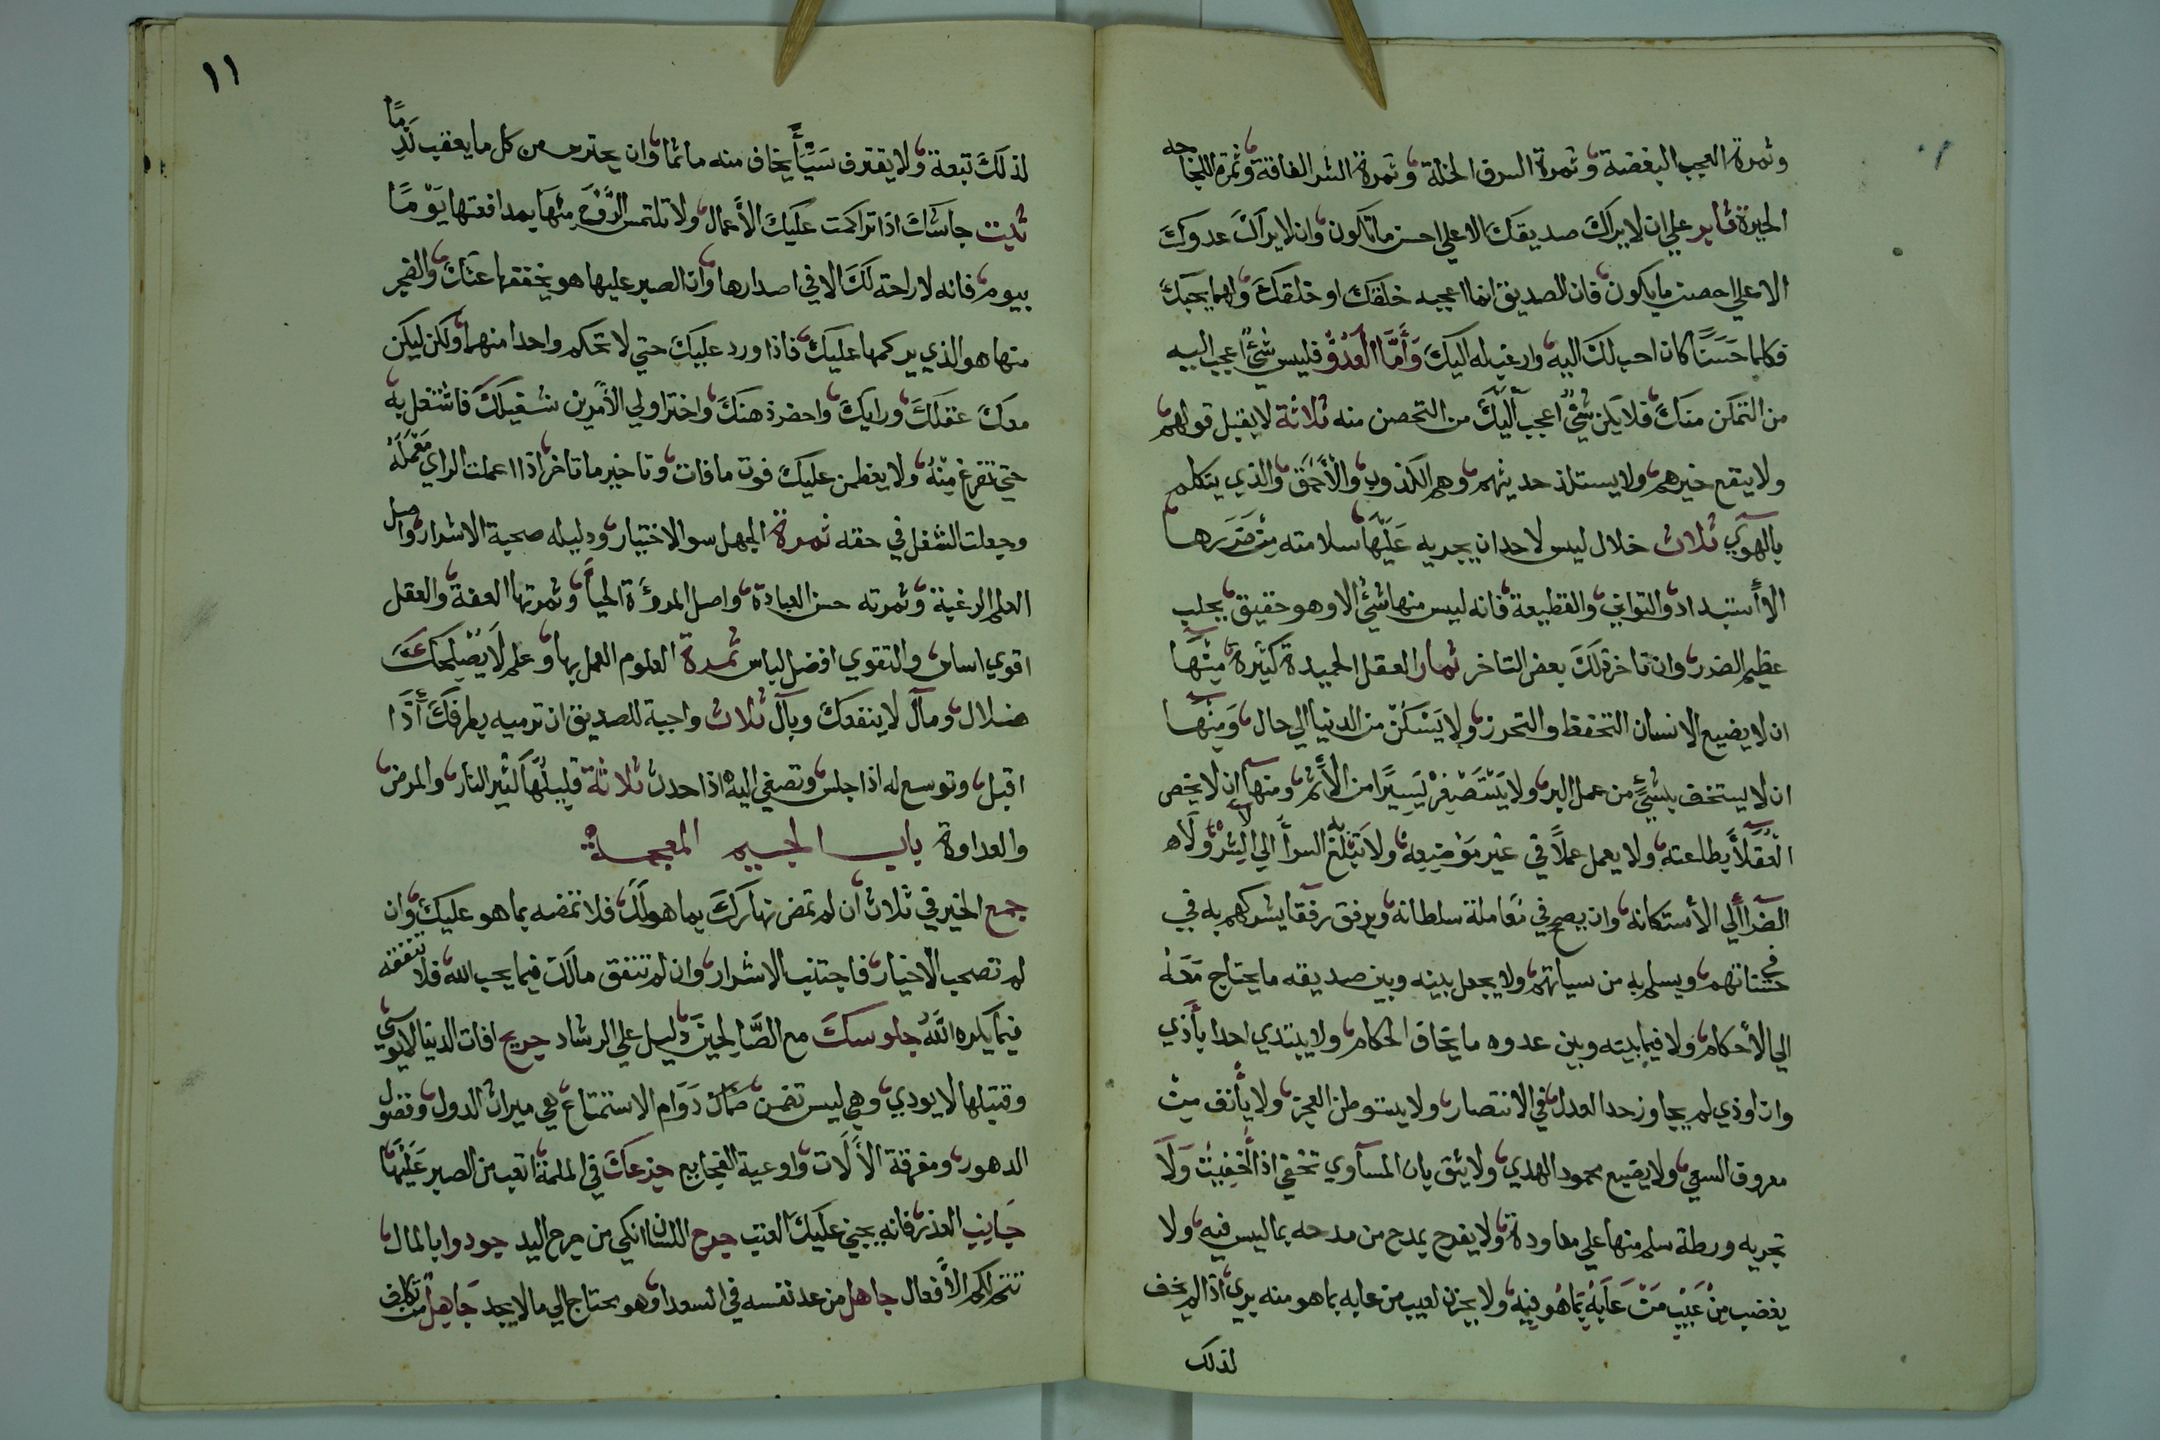 وثمرة العجب البغضة وثمرة السرف الخلة وثمرة الشر الفاقة وثمرة اللجاجه
الحيرة ثابر علي ان لا يراك صديقك الا علي احسن ما تكون وان لا يراك عدوك
الا علي احصن ما يكون فان الصديق انما اعجبه خلقك او خلقك وانما يحبك
فكلما حَسَنَا كان احب لك اليه وارغب له اليك وَأَمَّا العَدُوُّ فليس شئ اعجب اليه
من التمكن منك فلا يكن شئ اعجب اليك من التحصن منه ثلاثة لا يقبل قولهم
ولا ينفع خيرهم ولا يستلذ حديثهم وهم الكذوب والأحمق والذي يتكلم
بالهوي ثلاث خلال ليس لاحد ان يجربه عليها سلامته من ضررها
الاأستبداد والتواني والقطيعة فانه ليس منها شئ الا وهو حقيق بجلب
عظيم الضرر وان تاخر ذلك بعض التاخر ثمار العقل الحميدة كثيرة مِنْها
ان لا يضيع الانسان التحفظ والتحرز ولا يَسْكُنْ من الدنيا الي حال وَمِنْها
ان لا يستخف بشئ من عمل البر ولا يَسْتَصْغِرْ يَسِيرًا من الأثم ومنها ان لا يخص
العُقَلاَ بطلعته ولا يعمل عملاً في غير مَوْضِعِهْ ولا تبلغ به السرأ الي الأشر ولاه
الضرأ الي الأستكانه وان يصح في مُعاملة سلطانه ويرفق رفقا يشركهم به في
في حسناتهم ويسلم به من سياتهم ولا يجعل بينه وبين صديقه ما يحتاج مَعَهُ
الي الأحكام ولا فيما بينه وبين عدوه ما يخاف الحكام ولا يبتدي احدا بأذي
وان اوذي لم يجاوز حد العدل في الانتصار ولا يستوطن العجز ولا يأنف مِنْ
معروف السعي ولا يضيع محمود الهدي ولا يثق بان المسآوي تخفي اذا أُخْفِيَتْ وَلَا
تجربه ورطة سلم منها علي معاودة ولا يفرح بمدح من مدحه بما ليس فيه ولا
يغضب مِنْ عَيْبِ مَنْ عَابَهُ بِمَا هُوَ فِيهِ ولا يحزن لعيب من عابه بما هو منه بري اذا لم يخف
لذلك
١١
لذلك تبعة ولا يقترف سَيِّأً يخاف منه ماثما وان يحترس من كل ما يعقب نَدَِمًا
ثبت جاشك اذا تراكمت عليك الأعمال ولا تلتمس الرَّوْحَ مِنْهَا بمدافعتها يَوْمًا
بيوم فانه لا راحة لك الا في اصدارها وان الصبر عليها هو يخففها عَنْكَ والضجر
منها هو الذي يركمها عليك فاذا ورد عليك حتي لا تحكم واحدا منهما ولكن ليكن
معك عقلك ورايك واحضر ذهنك واختر اولي الأمرين بشغلك فاشتغل به
حتي تفرغ مِنْهُ ولا يعظمن عليك فوت ما فات وتاخير ما تاخر اذا اعملت الراي مَعْمَلَهُ
وجعلت الشغل في حقه ثمرة الجهل سو الاختيار ودليله صحبة الاشرار واصل
العلم الرغبة وثمرته حسن العبادة واصل المروءة الحيأ وثمرتها العفة والعقل
اقوي اساس والتقوي افضل لباس ثمرة العلوم العمل بها وعلم لا يُصْلِحُكَ
ضلال ومآل لا ينفعك وبآل ثلاث واجبة للصديق ان ترميه بطرفك أذا
اقبل وتوسع له اذا جلس وتصغي اليه اذا حدث ثلاثة قليلُهَا كثير النار والمرض
والعداوة باب الجيم المعجمة
جمع الخير في ثلاث أن لم تمض نهارك بما هو لَكَ فلا تمضه بما هو عليك وان
لم تصحب الأخيار فاجتنب الاشرار وان لم تنفق مالك فيما يحب الله فلا تنفقه
فيما يكره اللّهُ جلوسك مع الصَّالِحِينَ دليل علي الرشاد جريح افات الدنيا لا يوسي
وقتيلها لا يودي وهي ليس تضمن ضمان دَوَامِ الاستمتاع هي ميراث الدول وفضول
الدهور ومفرقة الألات واوعية الفجايع جزعك في الملمة اتعب من الصبر عَلَيْهَا
جَانِبِ العذر فانه يجني عليك العتب جرح اللسان انكي من جرح اليد جودوا بالمال
تتم لكم الأفعال جاهل من عد نفسه في السعدا وهو محتاج الي ما لا يجد جَاهِل من تكلف